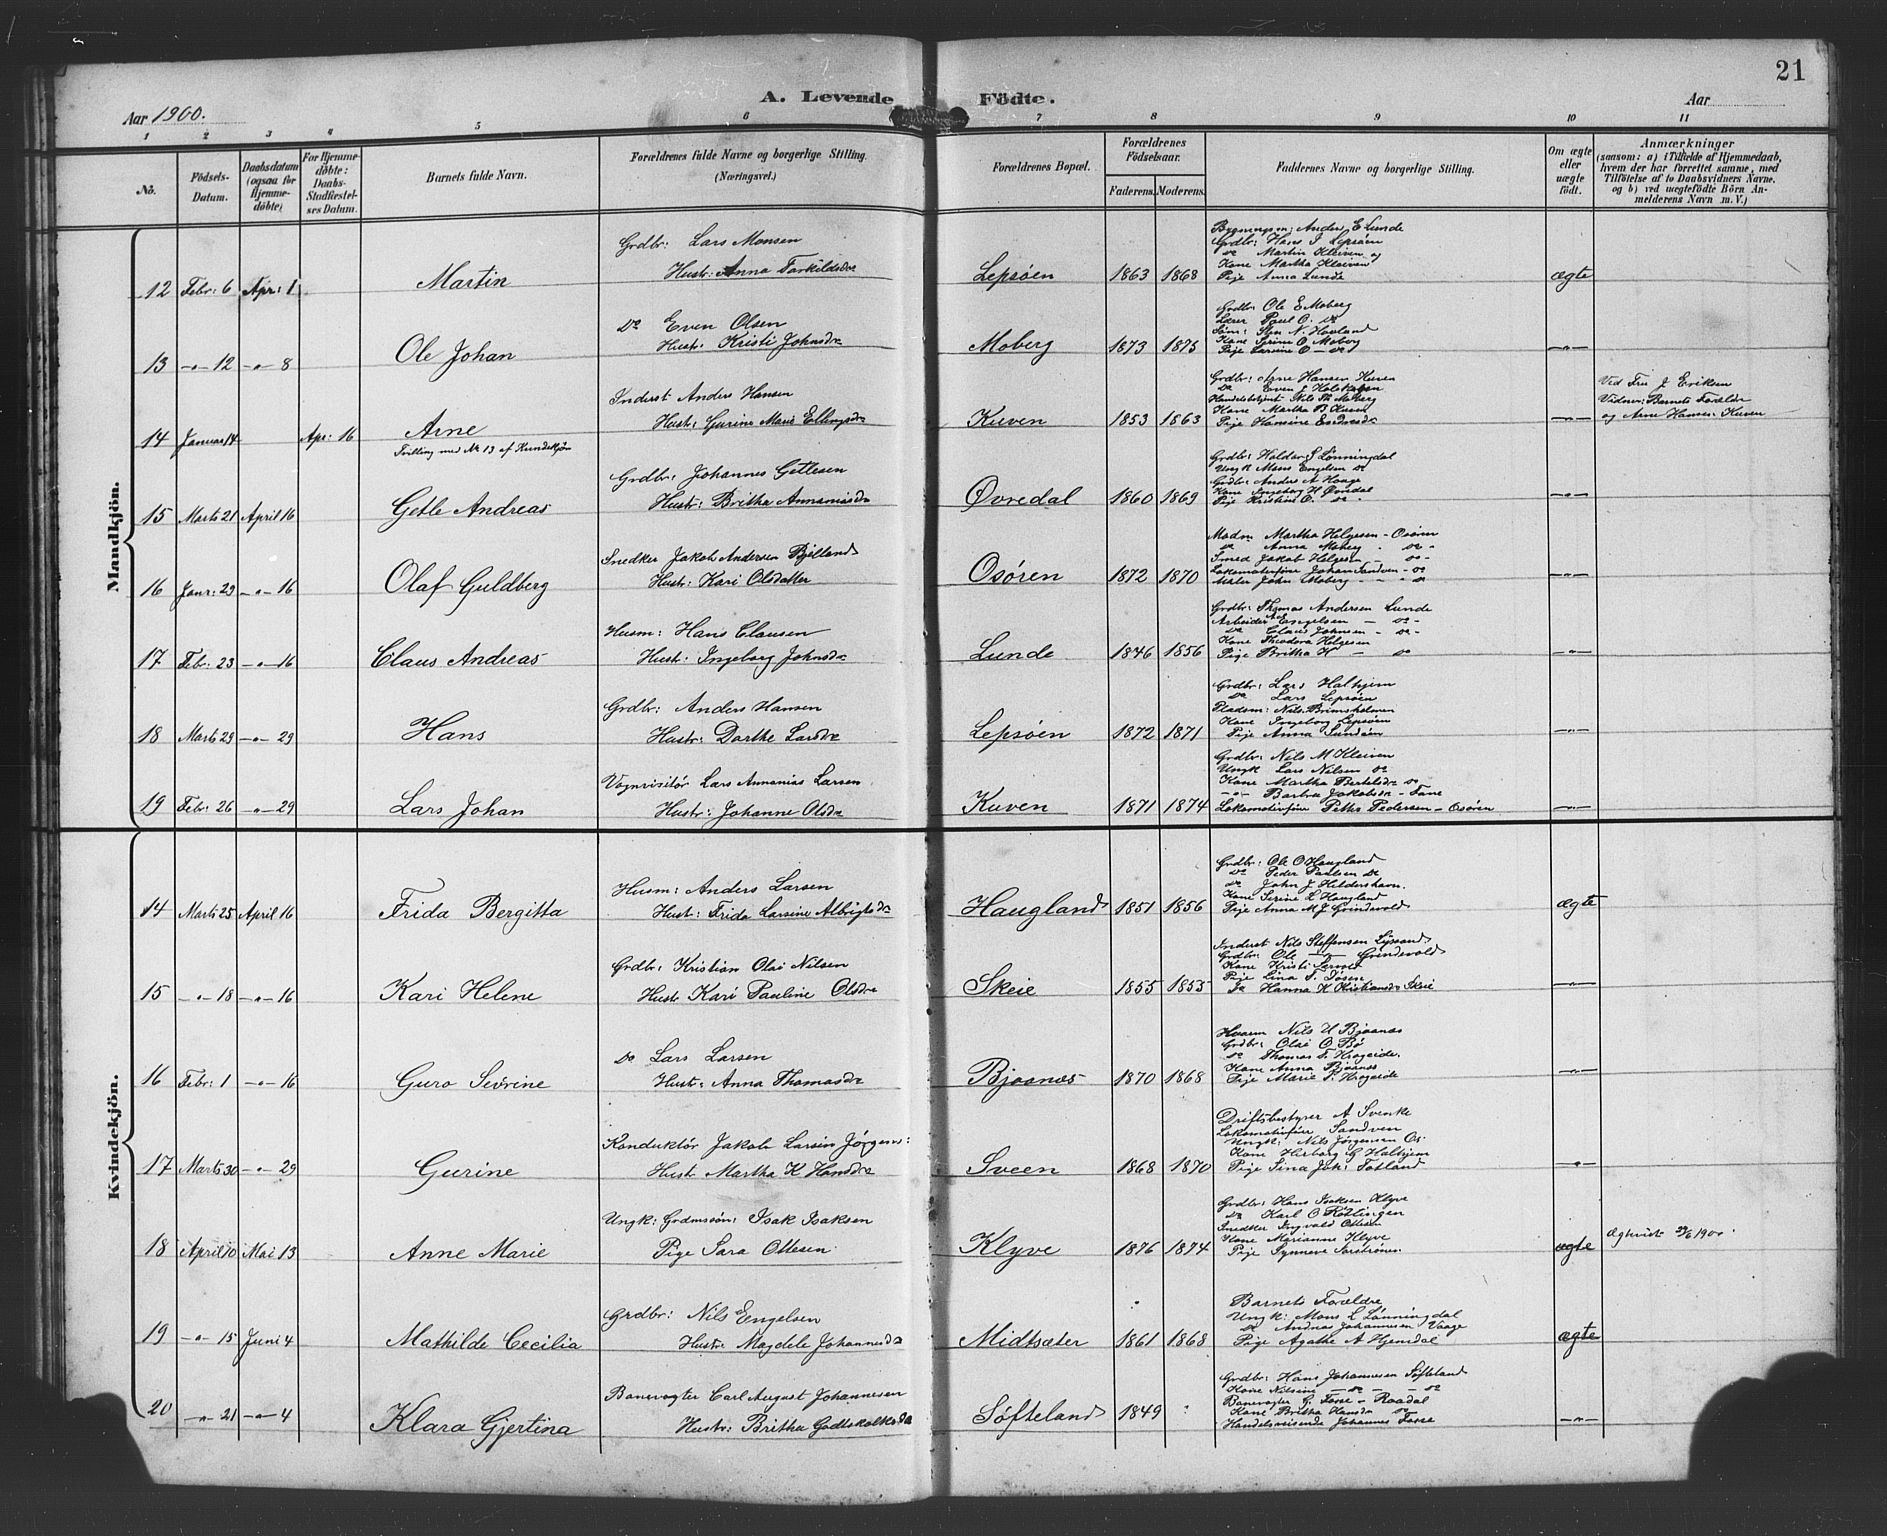 21
Aar 1900.
A. Levende Födte.
Aar
1 2 3 4 5 6 7 8 9 10 11
No.
Födsels-Datum.
Daabsdatum (ogsaa for Hjemme-döbte)
For Hjemme-döbte: Daabs-Stadfæstel-ses Datum.
Barnets fulde Navn.
Forældrenes fulde Navne og borgerlige Stilling. (Næringsvei.)
Forældrenes Bopæl.
Forældrenes Födselsaar.
Faderens. Moderens.
Faddernes Navne og borgerlige Stilling.
Om ægte eller uægte födt.
Anmærkninger
(saasom: a) i Tilfælde af Hjemmedaab, hvem der har forrettet samme, med Tilföielse af to Daabsvidners Navne, og b) ved uægtefödte Börn An-melderens Navn m. V.)
Mandkjön.
12 Febr: 6 Apr: 1 Martin
Grdbr: Lars Monsen
Hust: Anna Torkildsdr
Lepsøen 1863 1868
Bygningsm: Anders E Lunde
Grdbr: Hans J Lepsøen
do Martin Kleiven og
Kone Martha Kleiven
Pige Anna Lunde
ægte
13 -"- 12 -"- 8 Ole Johan
Do Even Olsen
Hust: Kristi Johnsdr
Moberg 1873 1875
Grdbr: Ole E Moberg
Lærer Poul O. do
Søm: Sten N. Hovland
Kone Serine O Moberg
Pige Larsine O - do
-"-
14 Januar 14 Apr: 16 Arne
Tvilling med No 13 af Kvindekjøn
Inderst Anders Hansen
Hust: Gurine Marie Ellingsdr
Kuven 1853 1863
Grdbr: Arne Hansen Kuven
do Even J Kolskogen
Handelsbetjent Nils Th Moberg
Kone Martha B Kuven
Pige Hansine Endresdr
-"-
Ved Fru J Eriksen
Vidner: Barnets Forældre
og Arne Hansen Kuven
15 Marts 21 April 16 Getle Andreas
Grdbr: Johannes Getlesen
Hustr: Britha Annaniasdr
Øvredal 1860 1869
Grdbr: Haldor S Lønningdal
Ungk Mons Engelsen do
Grdbr: Anders A Hauge
Kone Ingeborg H Øvredal
Pige Kristine O. do
-"-
16 Janr: 29 -"- 16 Olaf Guldberg
Snedker Jakob Andersen Bjelland
Hust: Kari Olsdatter
Osøren 1872 1870
Madm Martha Helgesen - Osøren
do Anna Moberg - do -
Smed Jakob Helgesen - do -
Lokomotivfører Johan Sandven - do
Maler John Moberg - do
-"-
17 Febr: 23 -"- 16 Claus Andreas
Husm: Hans Clausen
Hust: Ingeborg Johnsdr
Lunde 1846 1856
Grdbr: Thomas Andersen Lunde
Arbeider Engelsen - do -
do Claus Johnsen - do -
Kone Theodora Helgesen
Pige Britha H - do
-"-
18 Marts 29 -"- 29 Hans
Grdbr: Anders Hansen
Hustr: Dorthe Larsdr
Lepsøen 1872 1871
Grdbr: Lars Halhjem
do Lars Lepsøen
Pladsm: Nils Brimsholmen
Kone Ingeborg Lepsøen
Pige Anna Sundøen
-"-
19 Febr: 26 -"- 29 Lars Johan
Vognvisitør Lars Annanias Larsen
Hustr: Johanne Olsdr
Kuven 1871 1874
Grdbr: Nils M Kleiven
Ungk Lars Nilsen do
Kone Martha Bertelsdr do
-"- Barbra Jakobsen - Fane
Lokomotivfører Peter Pedersen - Osøren
-"-
Kvindekjön.
14 Marts 25 April 16 Frida Bergitta
Husm: Anders Larsen
Hust: Frida Larsine Albrigtsdr
Haugland 1851 1856
Grdbr: Ole O Haugland
do Peder Paulsen do
do John J Hildershavn.
Kone Serine L Haugland
Pige Anna M J Grindevold
ægte
15 -"- 18 -"- 16 Kari Helene
Grdbr: Kristian Olai Nilsen
Hust: Kari Pauline Olsdr
Skeie 1855 1855
Inderst Nils Steffensen Lysand
Grdbr: Ole - Grindevold
Kone Kristi
Pige Lina
Do Hanna K Kristiansdr Skeie
-"-
16 Febr: 1 -"- 16 Guro Sevrine
Do Lars Larsen
Hust: Anna Thomasdr
Bjoanæs 1870 1868
Husm Nils U Bjoanæs
Grdbr: Olai O Bø
do Thomas T. Hrogeide.
Kone Anna Bjoanæs
Pige Marie T. Hrogeide
-"-
17 Marts 30 -"- 29 Gurine
Konduktør Jakob Larsin Jørgens:
Hust: Martha K Hansdr
Sveen 1868 1870
Driftsbestyrer A Svenke
Lokomotivfører Sandven
Ungk: Nils Jørgensen Os.
Kone Herborg G Halhjem
Pige Sina Jak: Totland
-"-
18 April 10 Mai 13 Anne Marie
Ungk: Grdmssøn: Isak Isaksen
Pige Sara Ottesen
Klyve 1876 1874
Grdbr: Hans Isaksen Klyve
do Karl O Røttingen
Snedker Ingvald Ottesen
Kone Marianne Klyve
Pige Synneve
uægte
Ægteviet 24/6 1900
19 -"- 15 Juni 4 Mathilde Cecilia
Grdbr: Nils Engelsen
Hustr: Magdele Johannesdr
Midtsæter 1861 1868
Barnets Forældre
Ungk: Mons L Lønningdal
do Andreas Johannessen Vaage
Pige Agathe A Hjemdal
ægte
20 -"- 21 -"- 4 Klara Gjertina
Banevogter Carl August Johannesen
Hustr: Britha Godtskalksdr
Søfteland 1849
Grdbr: Hans Johannesen Søfteland
Kone Nilsine - do - - do
Banevogter G. Fosse - Raadal
Kone Britha Hansdr do
Handelsreisende Johannes Fosse
-"-